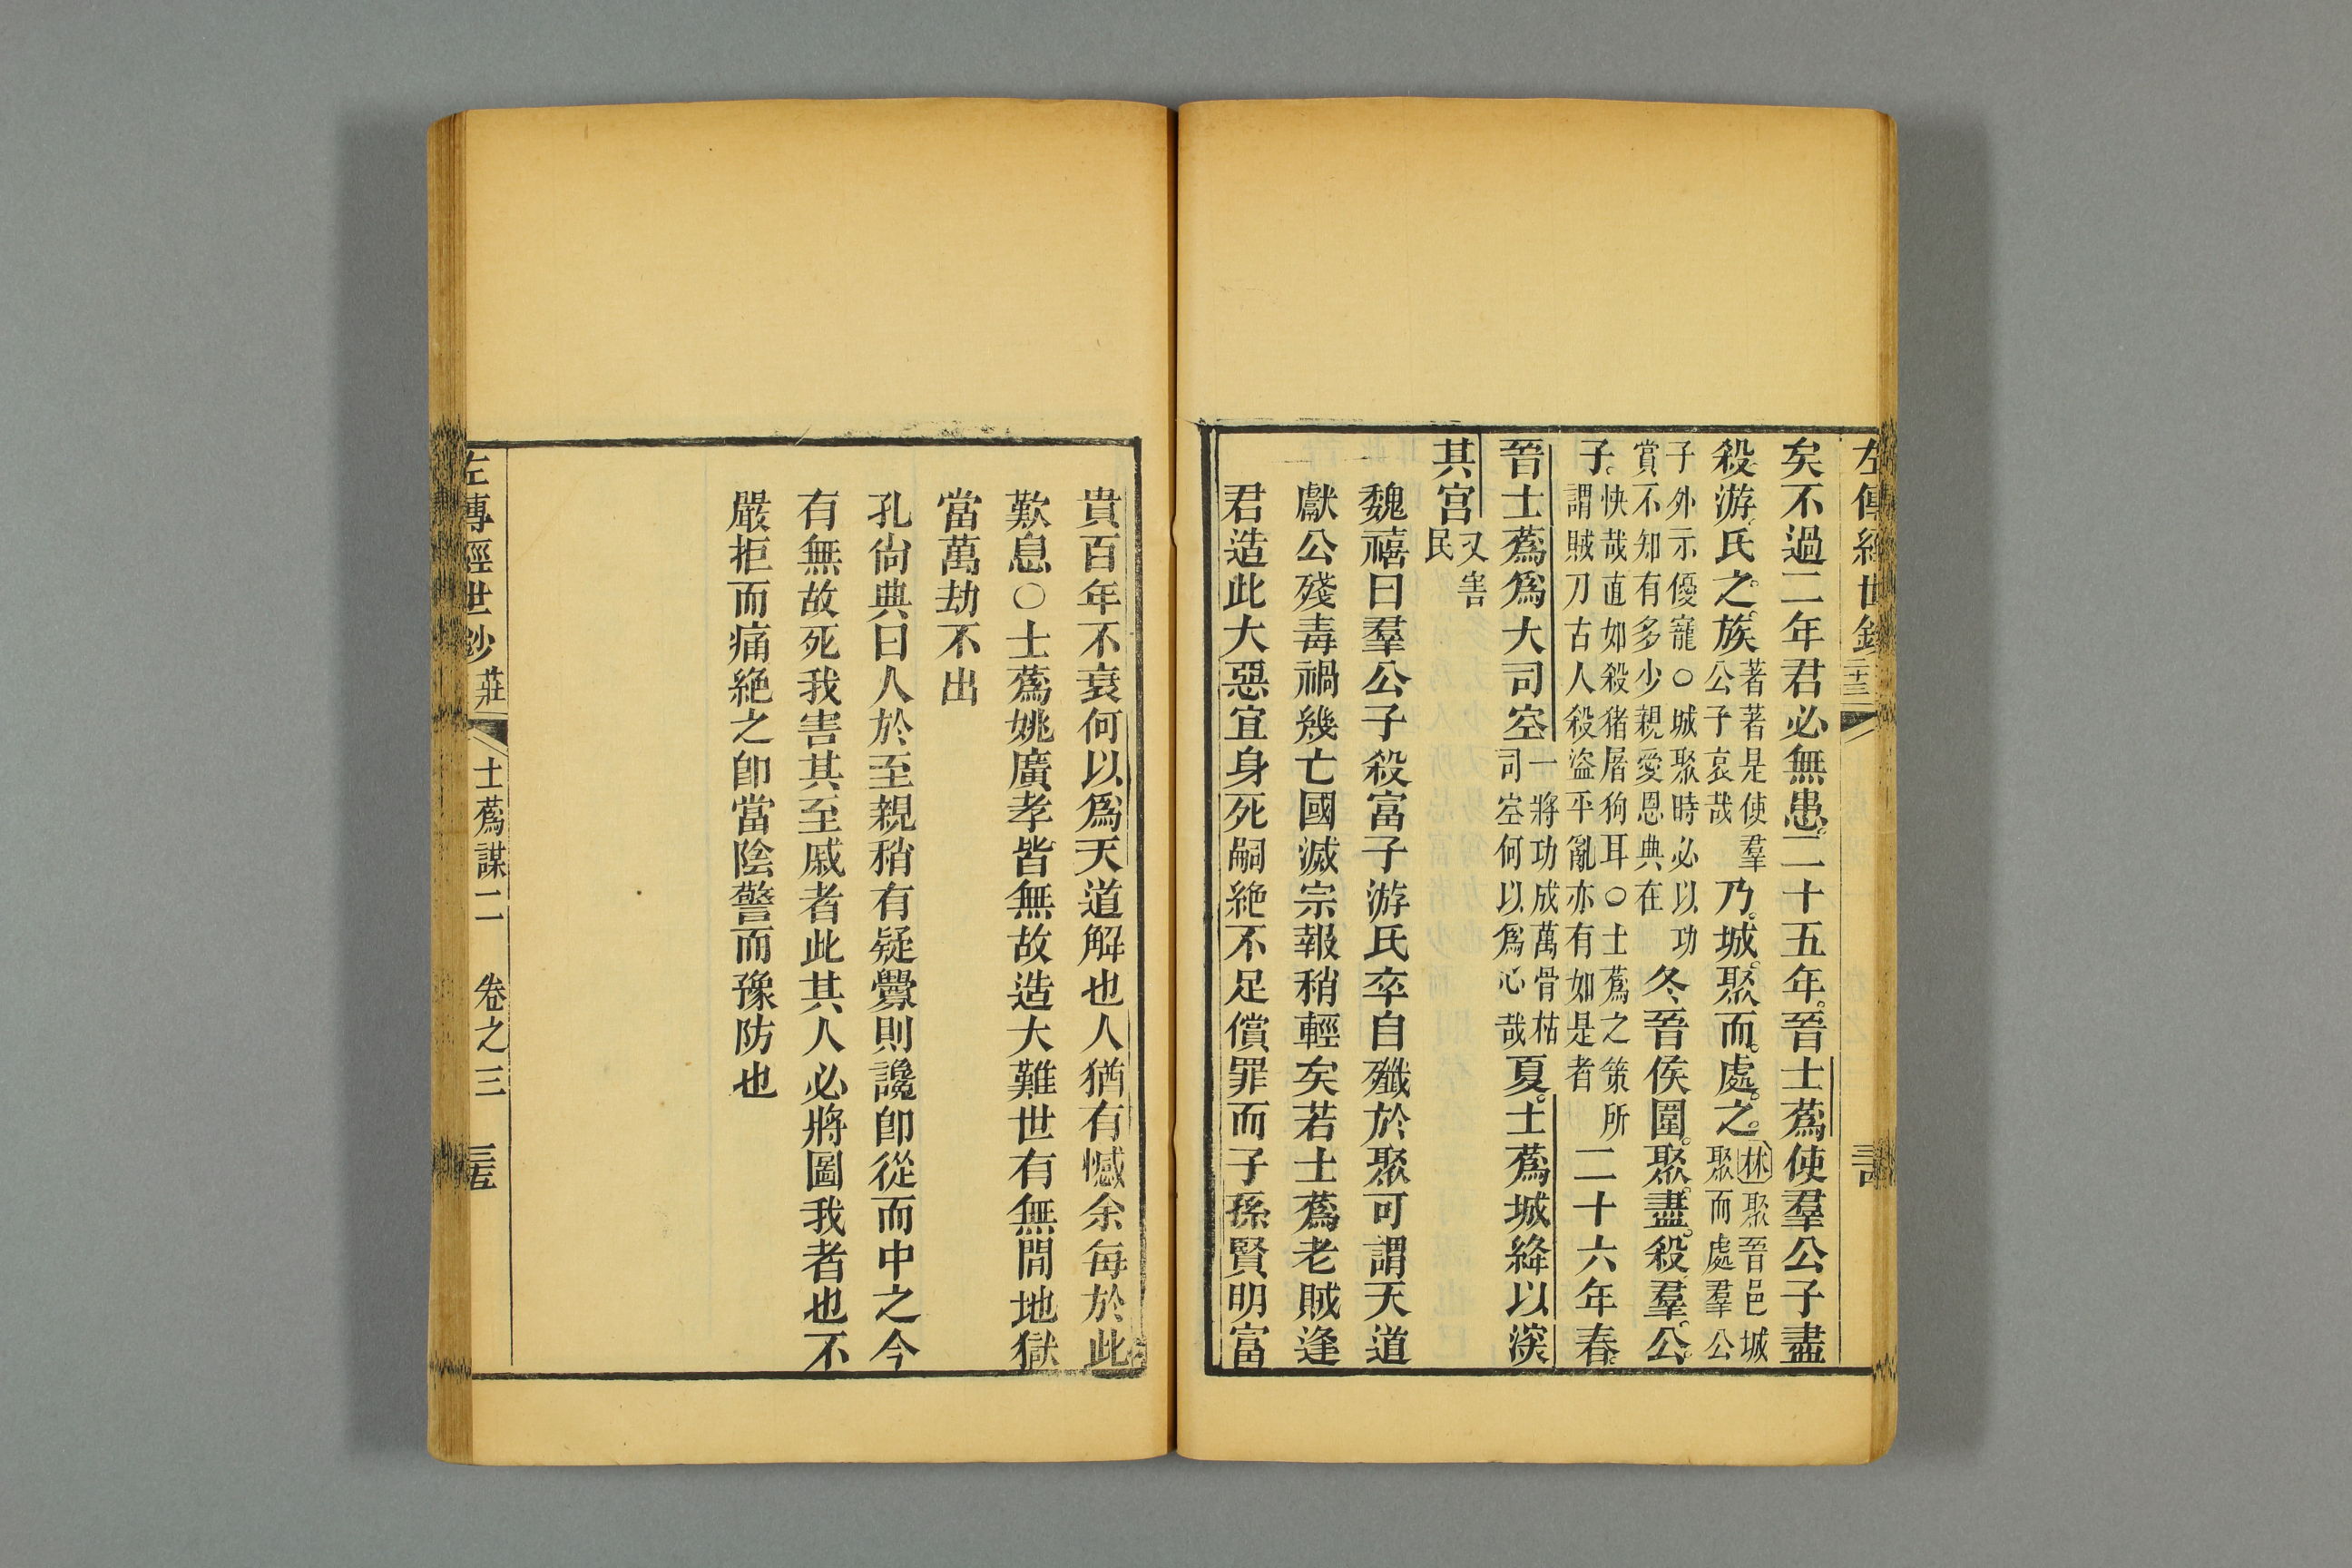 左傳經世鈔
矣不過二年君必無患二十五年晉士蔿使羣公子盡
殺游氏之族
著著是使羣
公子哀哉
乃城聚而處之
林聚晉邑城
聚而處羣公
子外示優寵○城聚時必以功
賞不知有多少親愛恩典在
冬晉侯圍聚盡殺羣公
子
快哉直如殺猪屠狗耳○士蔿之策所
謂賊刀古人殺盜平亂亦有如是者
二十六年春
晉士蔿爲大司空
一將功成萬骨枯
司空何以爲心哉
夏士蔿城絳以深
其宮
又害
民
魏禧曰羣公子殺富子游氏卒自殲於聚可謂天道
獻公殘毒禍幾亡國滅宗報稍輕矣若士蔿老賊逢
君造此大惡宜身死嗣絶不足償罪而子孫賢明富
貴百年不衰何以爲天道解也人猶有憾余每於此
歎息○士蔿姚廣孝皆無故造大難世有無間地獄
當萬劫不出
孔尙典曰人於至親稍有疑釁則讒卽從而中之今
有無故死我害其至戚者此其人必將圖我者也不
嚴拒而痛絶之卽當陰警而豫防也
左傳經世鈔 莊 士蔿謀二 卷之三